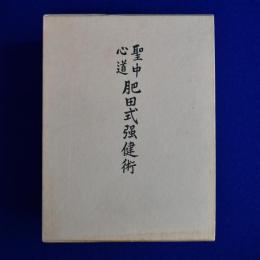 聖中心道
肥田式强健術